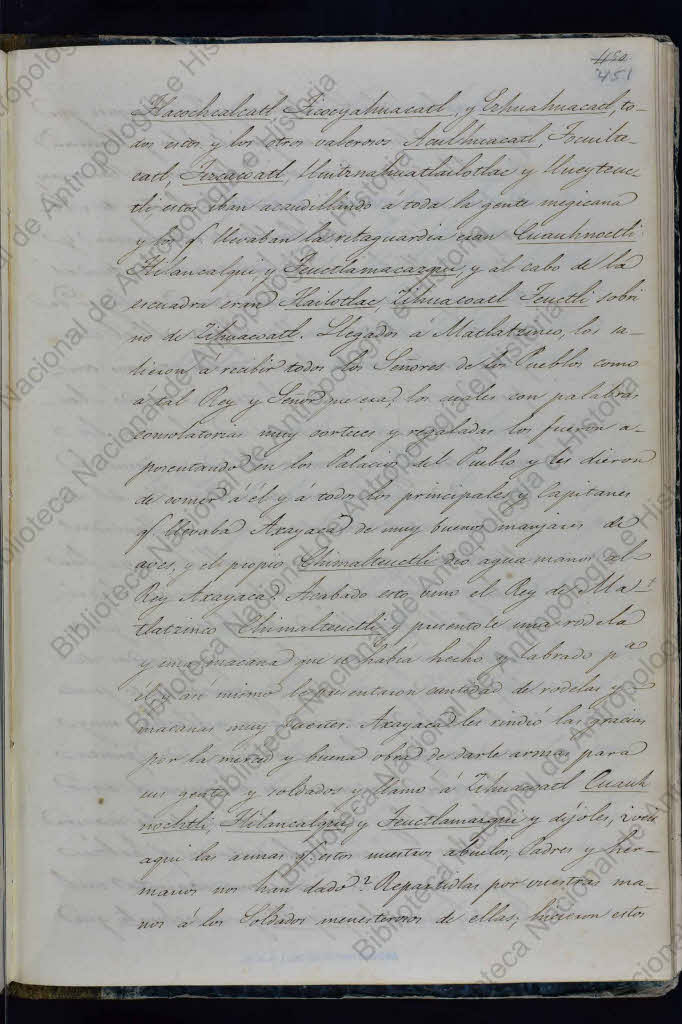 450
451
Tlacochcalcatl, Ticocyahuacatl, y Ezhuahuacatl, to-
dos estos y los otros valerosos Aculhuacatl, Tocuilte-
catl, Tezcacoatl, Huitznahuatlailotlac y Hueyteuc-
tli estos iban acaudillando a toda la gente megicana
y los q.e llevaban la retaguardia eran Cuauhnoctli
Tlilancalqui y Teuctlamacazqui, y al cabo de la
escuadra eran Tlailotlac, Zihuacoatl Teuctli sobri
no de Zihuacoatl. Llegados a Matlatzinco, los sa-
lieron á recibir todos los Señores de los Pueblos como
á tal Rey y Señor que era, los cuales con palabras
consolatorias muy corteces y regaladas los fueron a-
posentando en los Palacios del Pueblo y les dieron
de comer á él y á todos los principales y Capitanes
q.e llevaba Axayaca, de muy buenos manjares de
aves, y el propio Chimalteuctli dio agua manos al
Rey Axayaca. Acabado esto, vino el Rey de Ma-
tlatzinco Chimalteuctli y presentole una rodela
y una macana que se había hecho y labrado p.a
él y asi mismo le presentaron cantidad de rodelas y
macanas muy fuertes. Axayaca les rindió las gracias
por la merced y buena obra de darle armas para
sus gentes y soldados y llamó á Zihuacoatl Cuauh
nochtli, Tlilancalqui y Teuctlamazqui y díjoles, ¿veis
aqui las armas q.e estos nuestros abuelos, Padres y her-
manos nos han dado? Repartidlas por vuestras ma-
nos á los Soldados menesterosos de ellas, hicieron estos
Biblioteca Nacional de Antropología e Historia